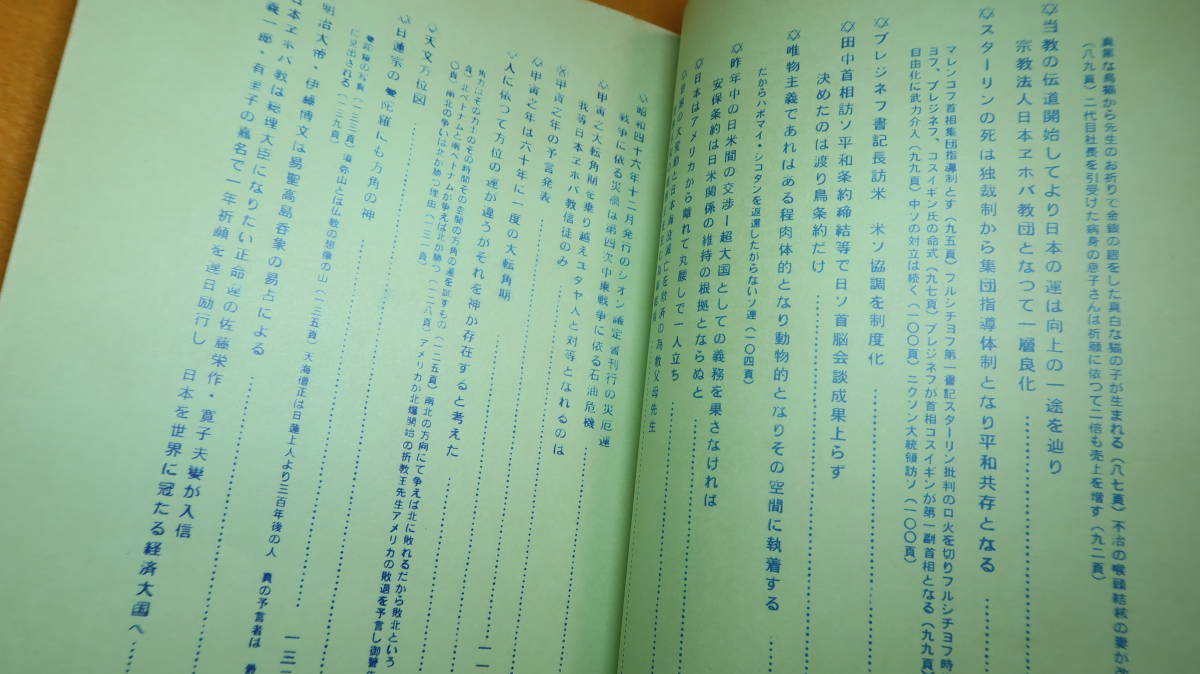 真黒な烏猫から先生のお祈りで金銀の眼をした真白な猫の子が生まれる(八七頁)不治の喉頭結核の妻が
(八九頁)二代目社長を引受けた病身の息子さんは祈願に依つて二倍も売上を増す(九二頁)
✡当教の伝道開始してより日本の運は向上の一途を辿り
宗教法人日本ヱホバ教団となつて一層良化
✡スターリンの死は独裁制から集団指導体制となり平和共存となる
マレンコフ首相集団指導制とす(九五頁)フルシチョフ第一書記スターリン批判の口火を切りフルシチョフ時
ヨフ、ブレジネフ、コスイギン氏の命式(九七頁)ブレジネフが首相コスイギンが第一副首相となる(九九頁)
自由化に武力介入(九九頁)中ソの対立は続く(一〇〇頁)ニクソン大統領訪ソ(一〇〇頁)
✡ブレジネフ書記長訪米 米ソ協調を制度化
✡田中首相訪ソ平和条約締結等で日ソ首脳会談成果上らず
決めたのは渡り鳥条約だけ
✡唯物主義であればある程肉体的となり動物的となりその空間に執着する
だからハボマイ・シコタンを返還したがらないソ連(一〇四頁)
✡昨年中の日米間の交渉ー超大国としての義務を果さなければ
安保条約は日米関係の維持の根拠とならぬと
✡日本はアメリカから離れて丸腰しで一人立ち
の大変動と日本海没滅亡を救済の為教父母先生
✡昭和四十六年十二月発行のシオン議定書刊行の災厄運
戦争に依る災禍は第四次中東戦争に依る石油危機
✡甲寅之大転角期を乗り越えユタヤ人と対等となれるのは
我等日本ヱホバ教信徒のみ
✡甲寅之年の予言発表
✡甲寅之年は六十年に一度の大転角期
✡人に依つて方位の運が違うがそれを神が存在すると考えた
角力はその力士のその時間その空間の方角の運を証すもの(一二五頁)南北の方向にて争えば北に敗れるだから敗北という
頁)北ベトナムと南ベトナムが争えば北が勝つ(一二八頁)アメリカが北爆開始の折教王先生アメリカの敗退を予言し御警告
〇頁)南北の争いは北が勝つ理由(一三一頁)
✡天文方位図
✡日蓮宗の曼陀羅にも方角の神
曼陀羅の写真(一三三頁)須弥山とは仏教の想像の山(一三五頁)天海僧正は日蓮上人より三百年後の人 真の予言者は
に見出される(一三九頁)
明治大帝・伊藤博文は易聖高島呑象の易占による
日本ヱホバ教は総理大臣になりたい正命運の佐藤栄作・寛子夫妻が入信
義一郎・有圭子の蟲名で一年祈願を連日励行し 日本を世界に冠たる経済大国へ